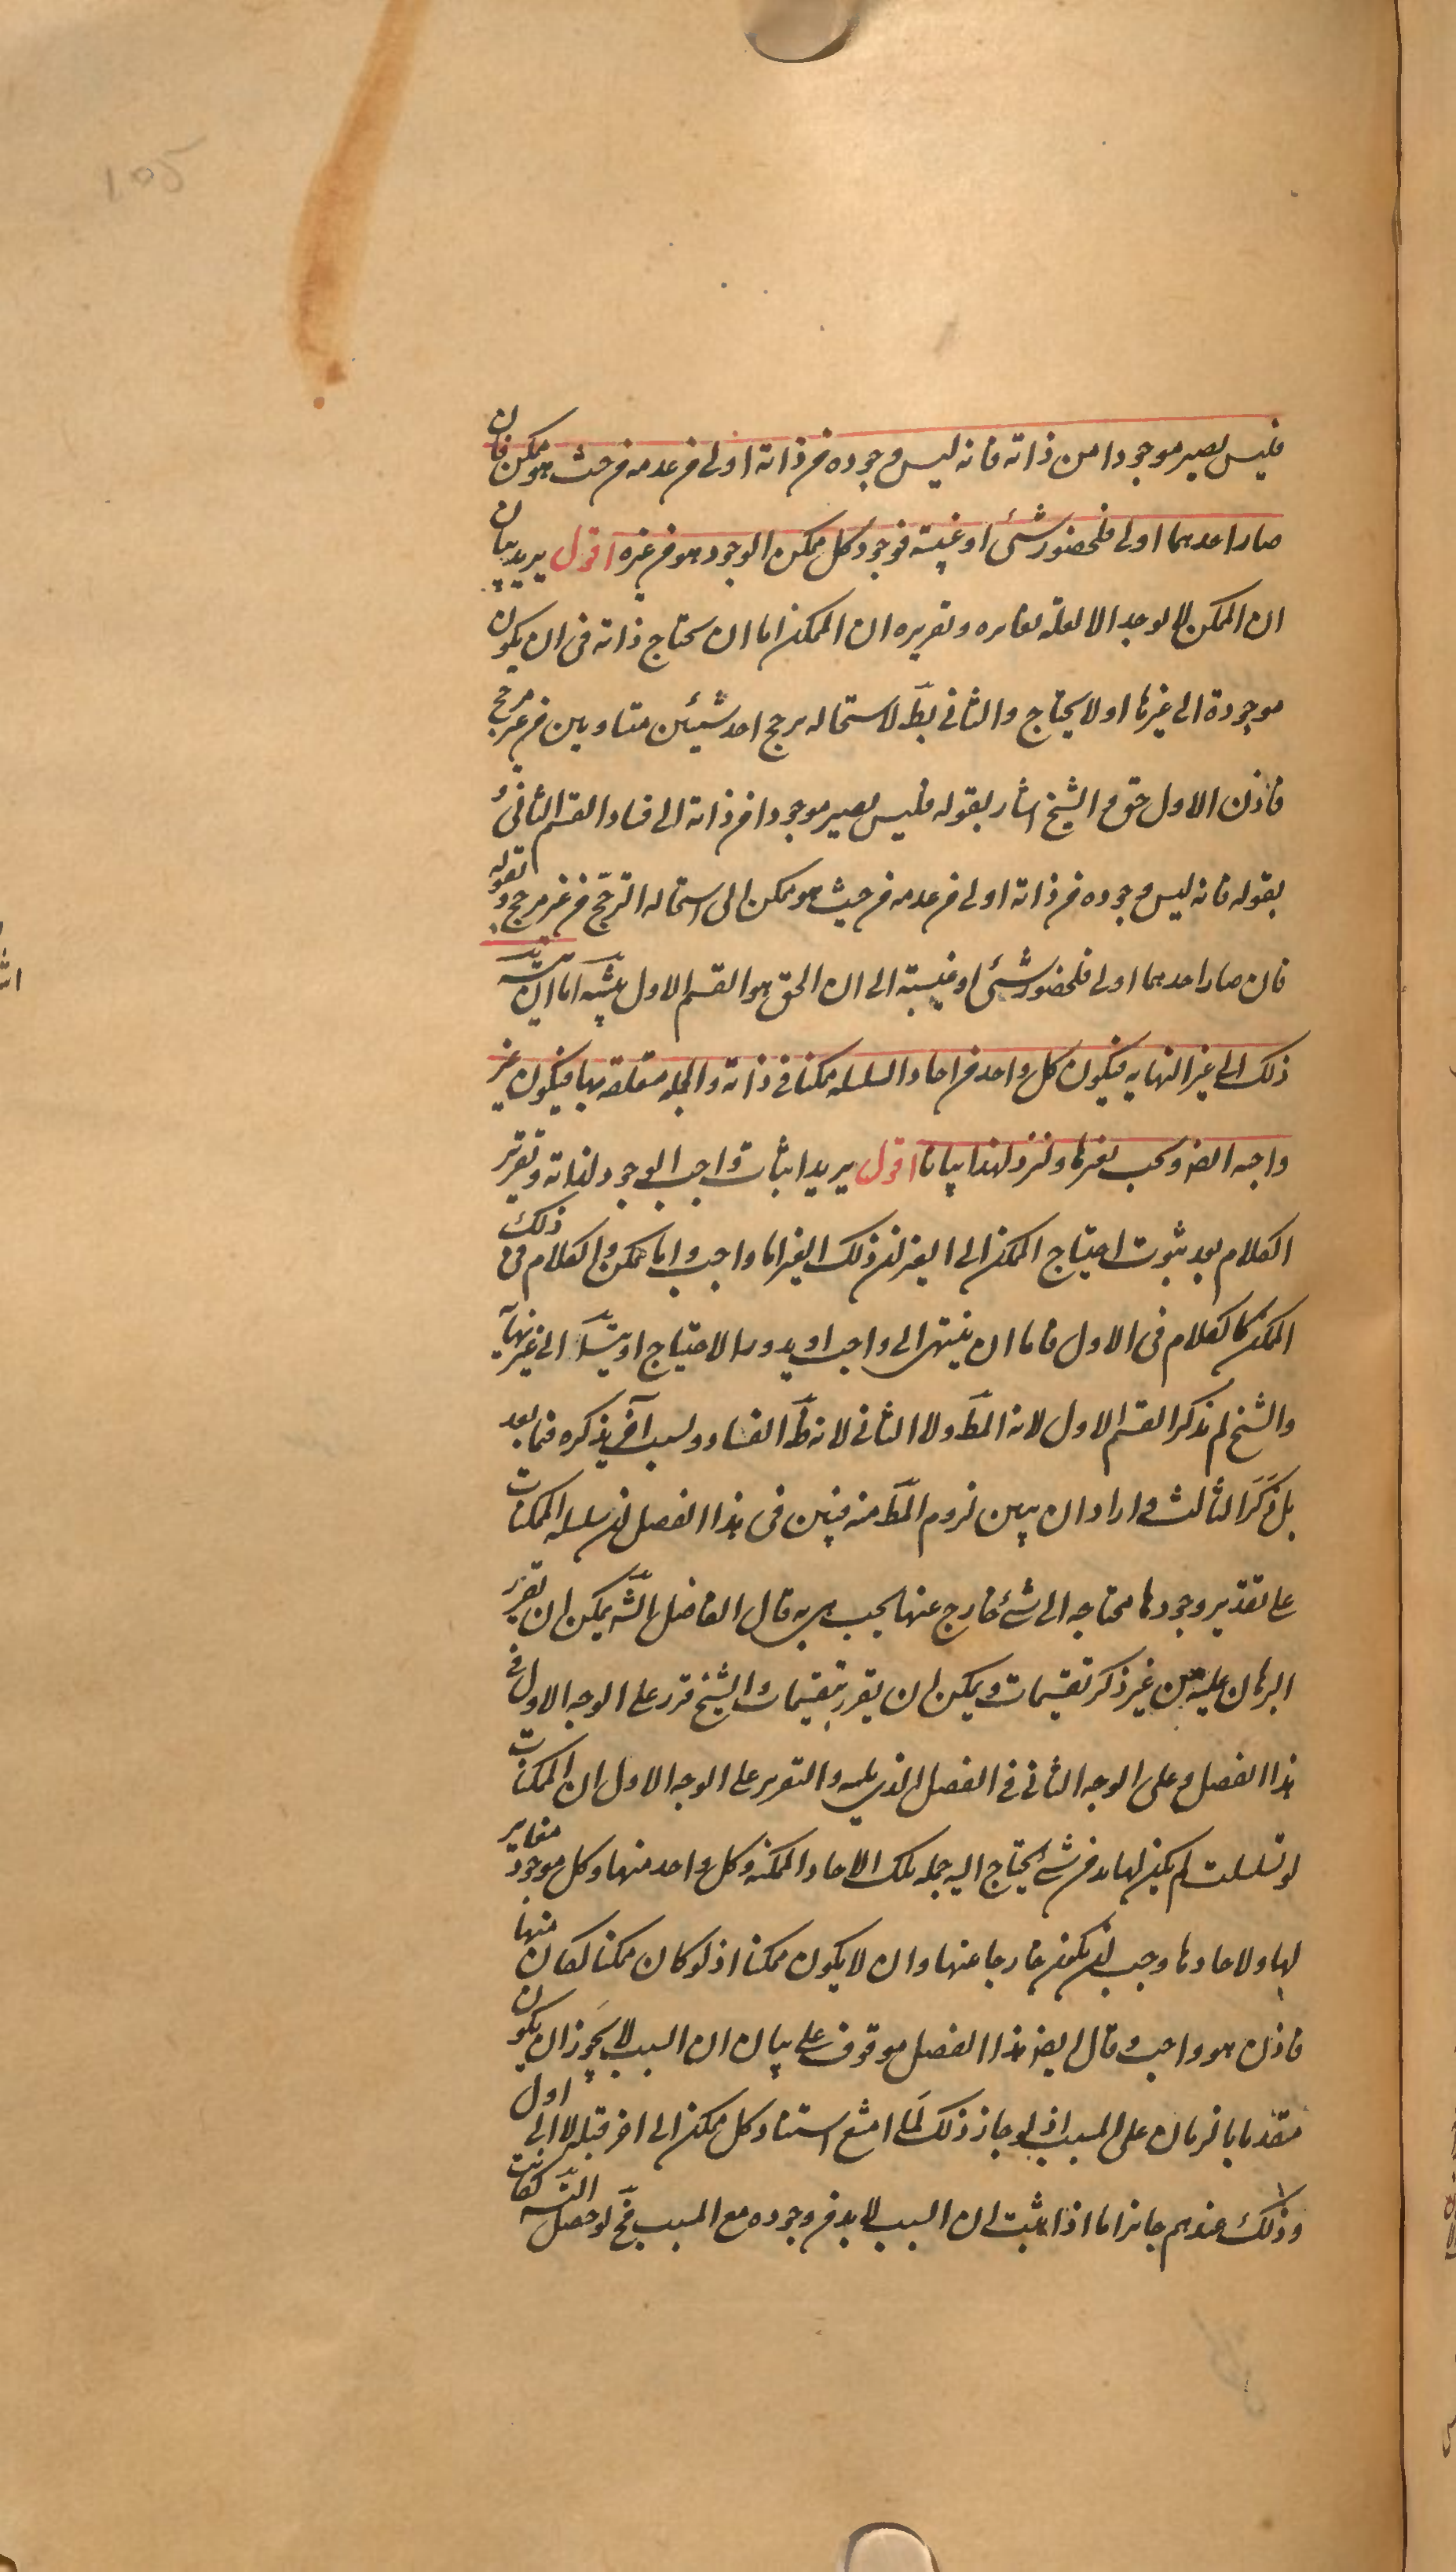 105
فليس يصير موجودا من ذاته فانه ليس وجوده من ذاته اولى من عدمه من حيث هو ممكن فان
صار احدهما اولى فلحضور شئ او غيبته فوجود كل ممكن الوجود هو من غيره اقول يريد بيان
ان الممكن لا يوجد الا لعلة تغايره وتقريره ان الممكن اما ان يحتاج ذاته فى ان يكون
موجودة الى غيرها او لا يحتاج والثانى بط لاستحاله ترجح احد شيئين متساويين من غير مرجح
فاذن الاول حق والشيخ اشار بقوله فليس يصير موجودا من ذاته الى فساد القسم الثانى و
بقوله فانه ليس وجوده من ذاته اولى من عدمه من حيث هو ممكن الى استحاله الترجح من غير مرجح وبقوله
فان صار احدهما اولى فلحضور شئ او غيبته الى ان الحق هو القسم الاول تنبيه اما ان يتسـ
ذلك الى غير النهايه فيكون كل واحد من احاد السلسله ممكنا فى ذاته والجمله متعلقه بها فيكون غير
واجبه ايضا ويجب بغيرها ولنزد لهذا بيانا اقول يريد اثبات واجب الوجود لذاته وتقرير
الكلام بعد ثبوت احتياج الممكن الى الغير ان ذلك الغير اما واجب واما ممكن والكلام فى ذلك
الممكن كالكلام فى الاول فاما ان ينتهى الى واجب او يدور الاحتياج او يتسـ الى غير نهايه
والشيخ لم يذكر القسم الاول لانه المط ولا الثانى لانه ظ الفساد ولسبب آخر يذكره فيما بعد
بل ذَكَرَ الثالث واراد ان يبين لزوم المط منه فبين فى هذا الفصل ان سلسله الممكنات
على تقدير وجودها محتاجه الى شئ خارج عنها يجب هى به قال الفاضل الشـ يمكن ان يقرر
البرهان عليه من غير ذكر تقسيمات ويمكن ان يقرر بتقسيمات والشيخ قرر على الوجه الاول فى
هذا الفصل وعلى الوجه الثانى فى الفصل الذى يليه والتقرير على الوجه الاول ان الممكنات
لو تسلسلت لم يكن لها بد من شئ يحتاج اليه جمله تلك الاحاد الممكنه وكل واحد منها وكل موجود مغاير
لها ولاحادها وجب ان يكون خارجا عنها وان لا يكون ممكنا اذ لو كان ممكنا لكان منها
فاذن هو واجب وقال ايضا هذا الفصل موقوف على بيان ان السبب لا يَجوز ان يكون
متقدما بالزمان على المسبب اذ لو جاز ذلك لَما امتنع استناد كل ممكن الى اخر قبله لا الى اول
وذلك عندهم جائز اما اذا ثبت ان السبب لابد من وجوده مع المسبب فح لو حصل التسـ لكانت